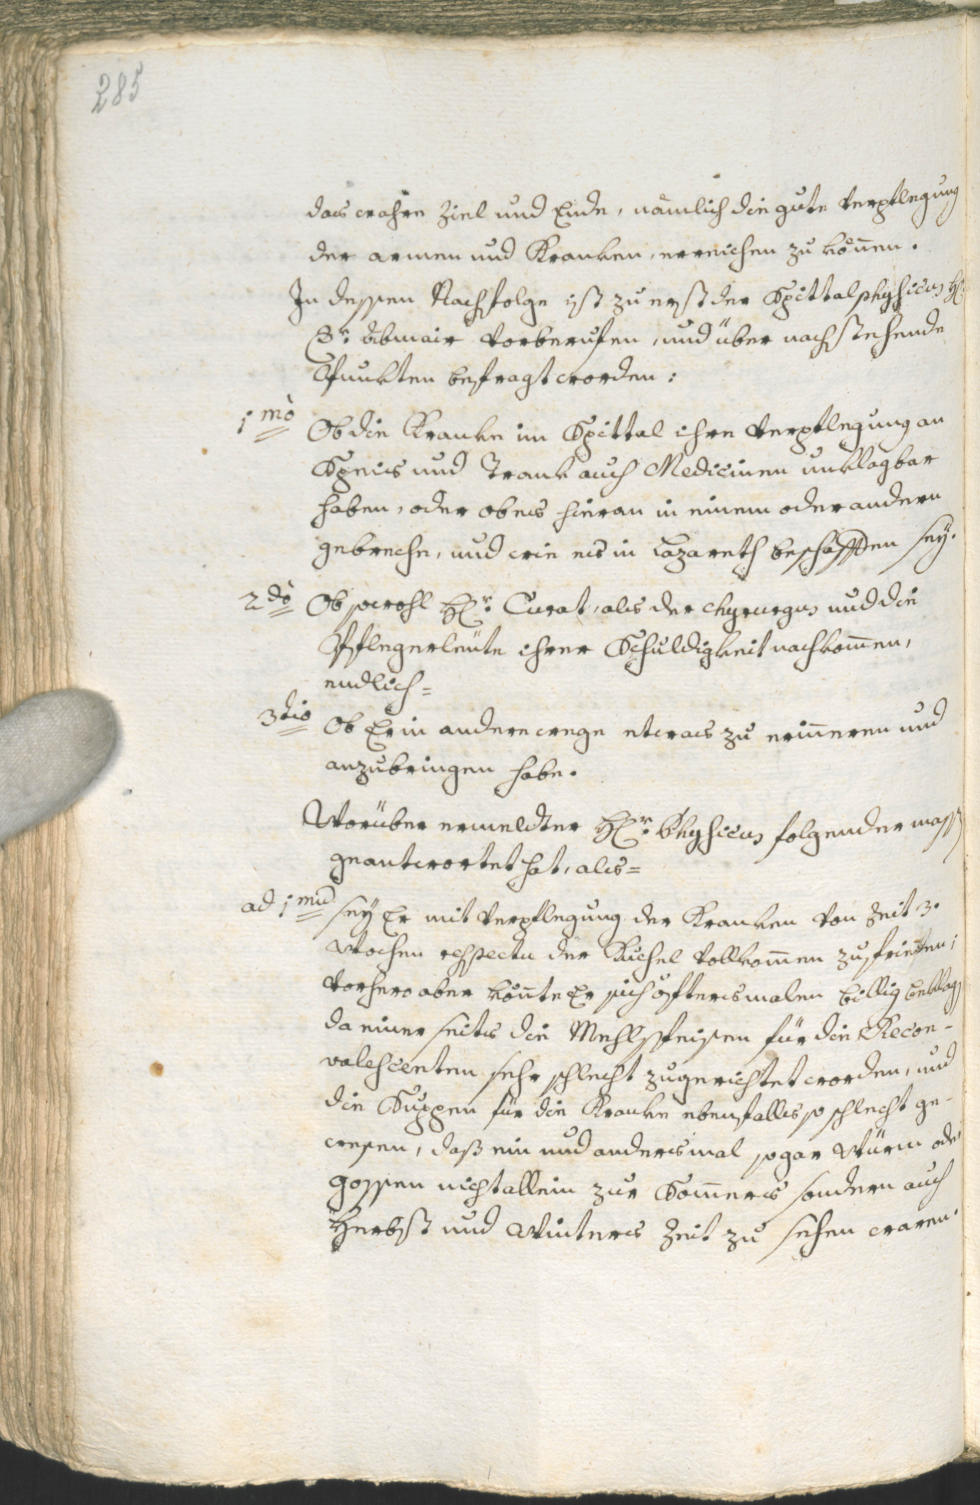 285
das wahre Ziel und Ende, nämlich die gute Verpflegung
der armen und Kranken, erreichen zu können.
In dessen Nachfolge ist zu erst der Spittalphysicus H:
Dr. Ebmair vorberufen, und über nachstehende
Punkten befragt worden:
1mò Ob die Kranke im Spittal ihre Verpflegung an
Speis und Trank auch Medicinen unklagbar
haben, oder ob es hieran in einem oder andern
gebreche, und wie es in Lazareth beschaffen sey.
2dò Ob sowohl Hr. Curat, als der Chyrurgus und die
Pflegerleüte ihrer Schuldigkeit nachkom̄en,
endlich=
3tio Ob Er in andere wege etwas zu erin̄eren und
anzubringen habe.
Worüber ermeldter Hr. Physicus folgender mass
geantwortet hat, als=
ad 1mũ sey Er mit Verpflegung der Kranken von Zeit 3.
Wochen respectu der Kuchel vollkom̄en zufrieden;
Vorhero aber kön̄te Er sich öftersmalen billig beklag
da einer seits die Mehlspeisen für die Recon-
valescenten sehr schlecht zugerichtet worden, und
die Suppen für die Kranke ebenfalls so schlecht ge-
wesen, daß ein und andersmal sogar Würm ode
gossen nicht allein zur Som̄ers sondern auch
Herbst und Winters Zeit zu sehen waren.